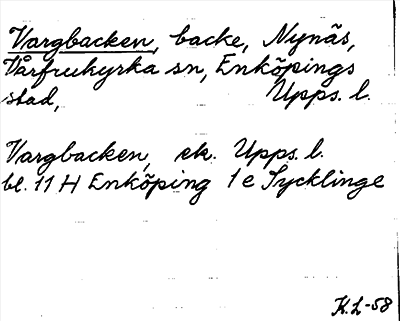 Vargbacken, backe, Nynäs,
Vårfrukyrka sn, Enköpings
stad, Upps. l.
Vargbacken, ek. Upps. l.
bl. 11 H Enköping 1e Sycklinge
K.L-58